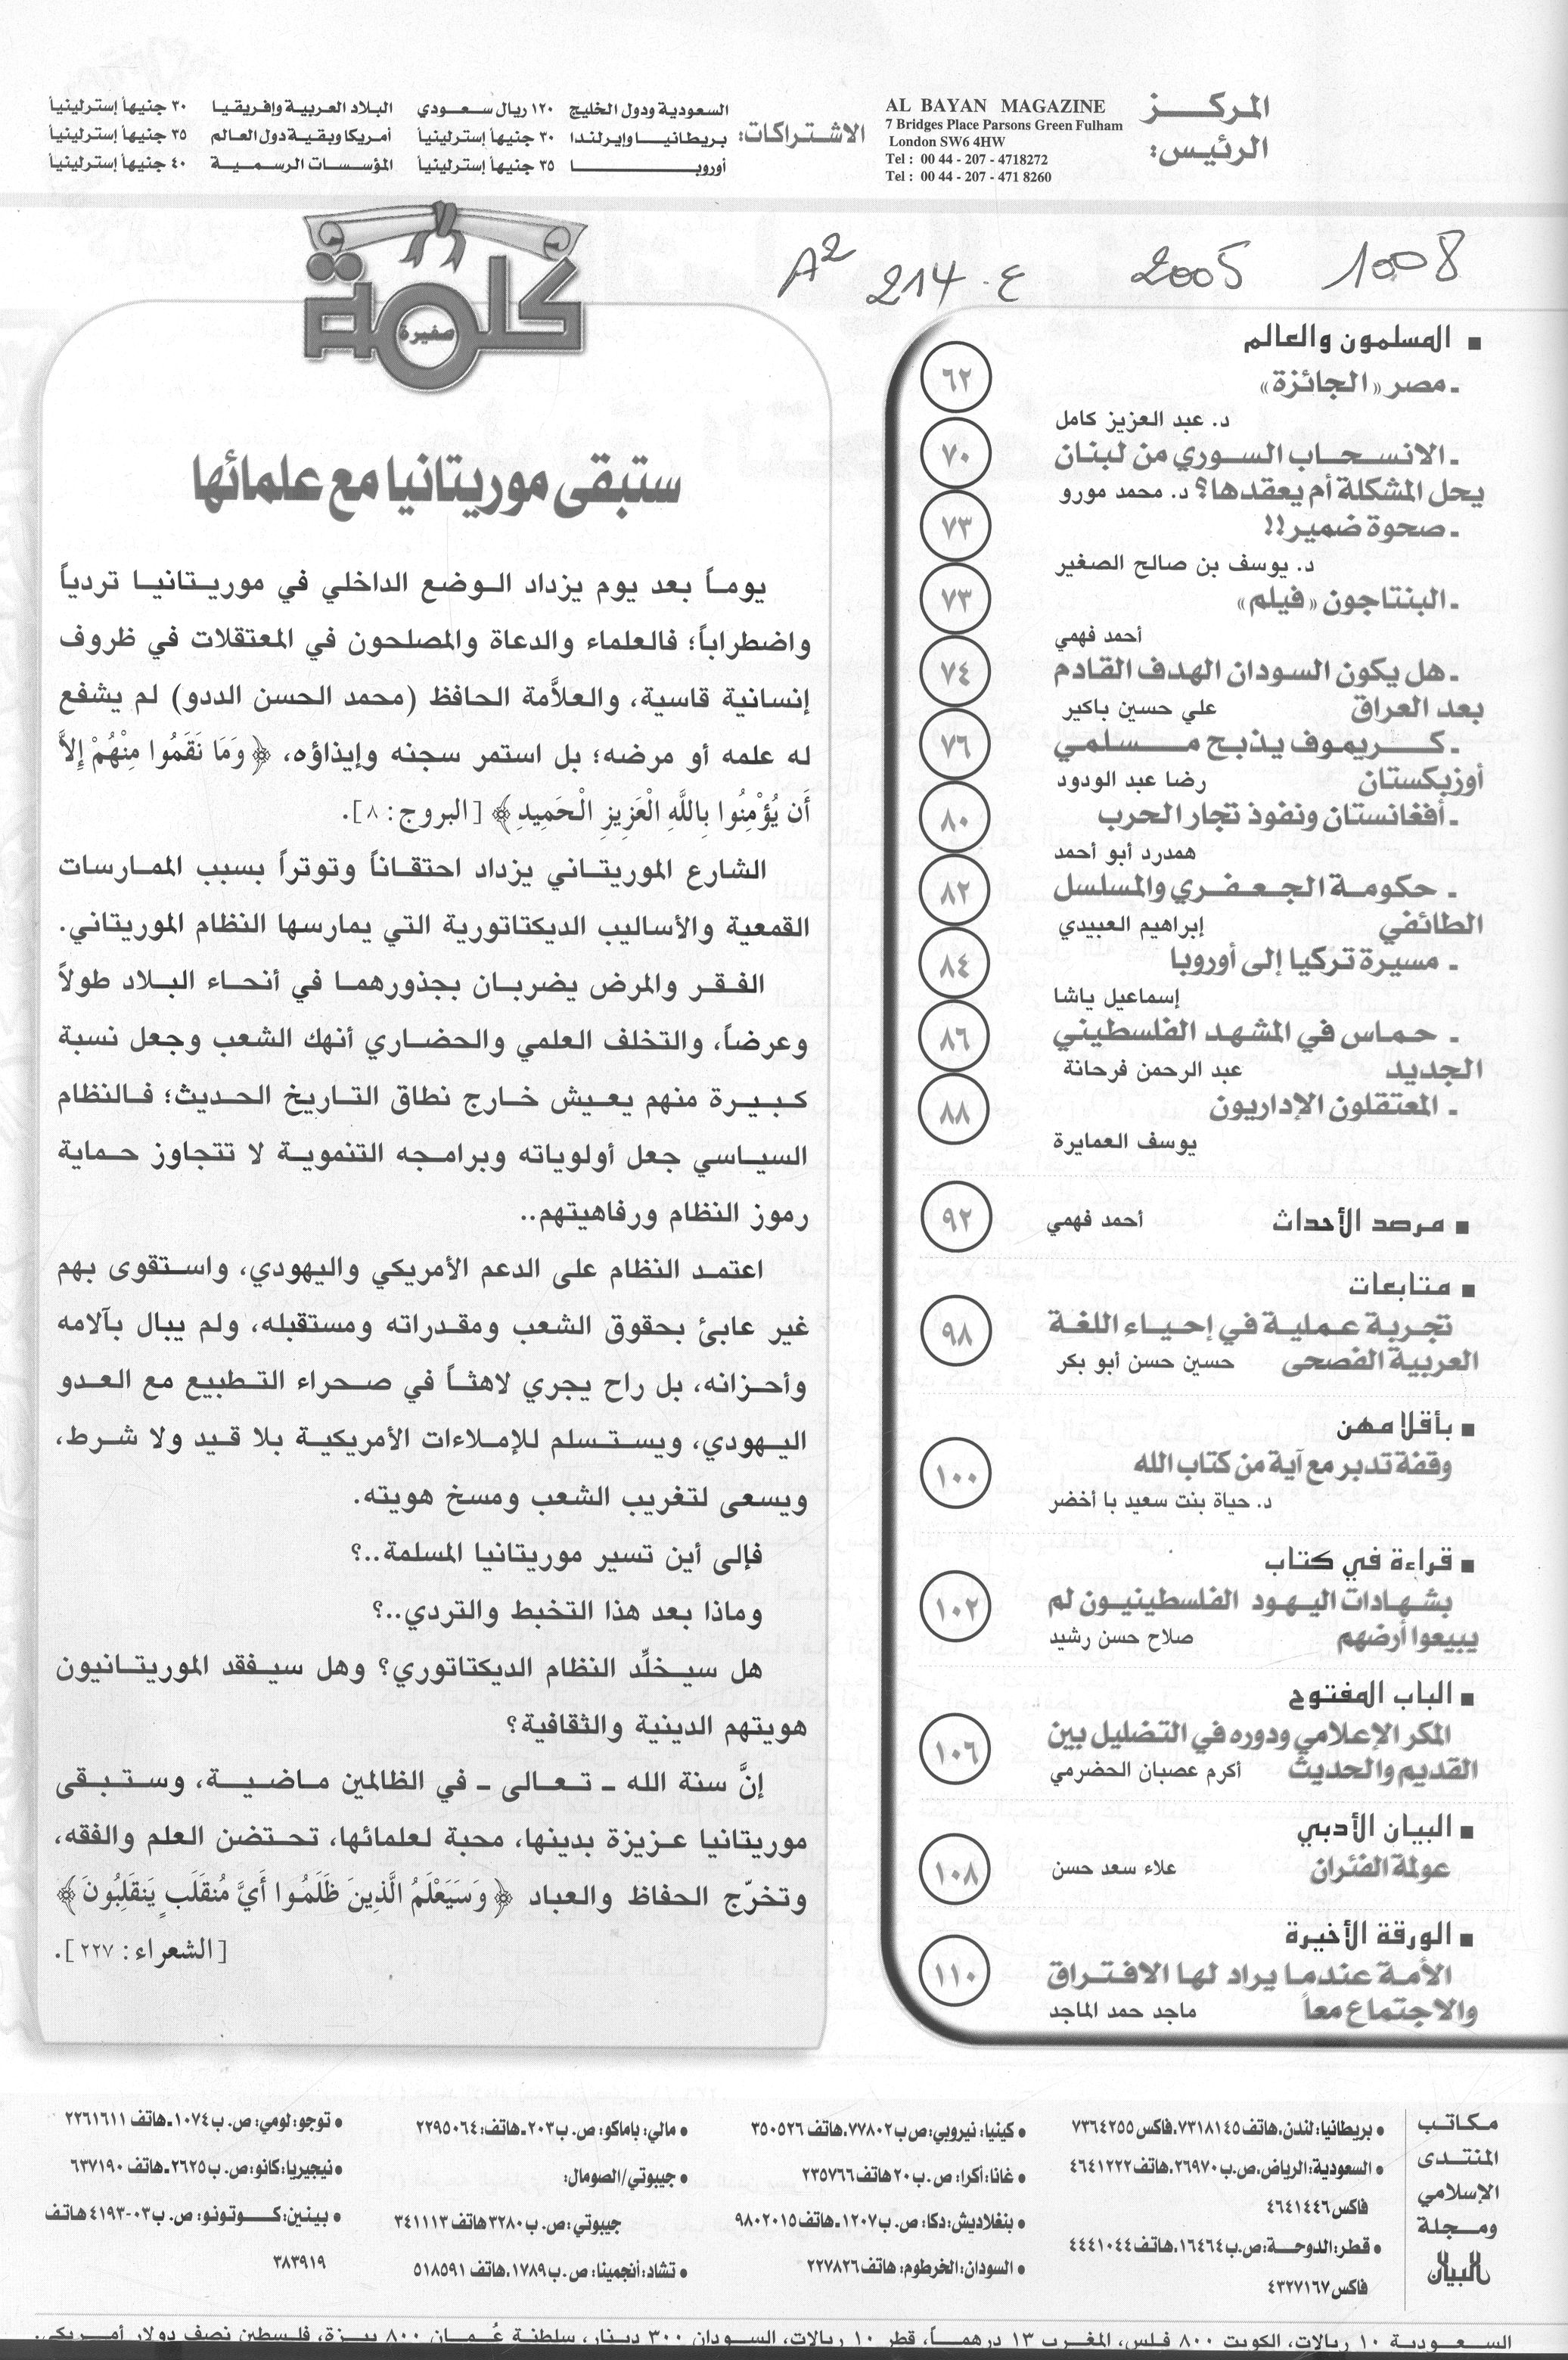 المركز
الرئيس:
AL BAYAN MAGAZINE
7 Bridges Place Parsons Green Fulham
London SW6 4HW
Tel : 00 44 - 207 - 4718272
Tel : 00 44 - 207 - 471 8260
الاشتراكات:
السعودية ودول الخليج ١٢٠ ريال سعودي
بريطانيا وإيرلندا ٣٠ جنيهاً إسترلينياً
أوروبا ٣٥ جنيهاً إسترلينياً
البلاد العربية وإفريقيا ٣٠ جنيهاً إسترلينياً
أمريكا وبقية دول العالم ٣٥ جنيهاً إسترلينياً
المؤسسات الرسمية ٤٠ جنيهاً إسترلينياً
A2 214.ع 2005 1008
■ المسلمون والعالم
ـ مصر «الجائزة» ٦٢
د. عبد العزيز كامل
ـ الانسحاب السوري من لبنان ٧٠
يحل المشكلة أم يعقدها؟ د. محمد مورو
ـ صحوة ضمير!! ٧٣
د. يوسف بن صالح الصغير
ـ البنتاجون «فيلم» ٧٣
أحمد فهمي
ـ هل يكون السودان الهدف القادم ٧٤
بعد العراق علي حسين باكير
ـ كريموف يذبح مسلمي ٧٦
أوزبكستان رضا عبد الودود
ـ أفغانستان ونفوذ تجار الحرب ٨٠
همدرد أبو أحمد
ـ حكومة الجعفري والمسلسل ٨٢
الطائفي إبراهيم العبيدي
ـ مسيرة تركيا إلى أوروبا ٨٤
إسماعيل ياشا
ـ حماس في المشهد الفلسطيني ٨٦
الجديد عبد الرحمن فرحانة
ـ المعتقلون الإداريون ٨٨
يوسف العمايرة
■ مرصد الأحداث أحمد فهمي ٩٢
■ متابعات
تجربة عملية في إحياء اللغة ٩٨
العربية الفصحى حسين حسن أبو بكر
■ بأقلامهن
وقفة تدبر مع آية من كتاب الله ١٠٠
د. حياة بنت سعيد با أخضر
■ قراءة في كتاب
بشهادات اليهود الفلسطينيون لم ١٠٢
يبيعوا أرضهم صلاح حسن رشيد
■ الباب المفتوح
المكر الإعلامي ودوره في التضليل بين ١٠٦
القديم والحديث أكرم عصبان الحضرمي
■ البيان الأدبي
عولمة الفئران علاء سعد حسن ١٠٨
■ الورقة الأخيرة
الأمة عندما يراد لها الافتراق ١١٠
والاجتماع معاً ماجد حمد الماجد
كلمة
صغيرة
ستبقى موريتانيا مع علمائها
يوماً بعد يوم يزداد الوضع الداخلي في موريتانيا تردياً
واضطراباً؛ فالعلماء والدعاة والمصلحون في المعتقلات في ظروف
إنسانية قاسية، والعلاَّمة الحافظ (محمد الحسن الددو) لم يشفع
له علمه أو مرضه؛ بل استمر سجنه وإيذاؤه، ﴿وَمَا نَقَمُوا مِنْهُمْ إِلاَّ
أَن يُؤْمِنُوا بِاللَّهِ الْعَزِيزِ الْحَمِيدِ﴾ [البروج: ٨].
الشارع الموريتاني يزداد احتقاناً وتوتراً بسبب الممارسات
القمعية والأساليب الديكتاتورية التي يمارسها النظام الموريتاني.
الفقر والمرض يضربان بجذورهما في أنحاء البلاد طولاً
وعرضاً، والتخلف العلمي والحضاري أنهك الشعب وجعل نسبة
كبيرة منهم يعيش خارج نطاق التاريخ الحديث؛ فالنظام
السياسي جعل أولوياته وبرامجه التنموية لا تتجاوز حماية
رموز النظام ورفاهيتهم..
اعتمد النظام على الدعم الأمريكي واليهودي، واستقوى بهم
غير عابئ بحقوق الشعب ومقدراته ومستقبله، ولم يبال بآلامه
وأحزانه، بل راح يجري لاهثاً في صحراء التطبيع مع العدو
اليهودي، ويستسلم للإملاءات الأمريكية بلا قيد ولا شرط،
ويسعى لتغريب الشعب ومسخ هويته.
فإلى أين تسير موريتانيا المسلمة..؟
وماذا بعد هذا التخبط والتردي..؟
هل سيخلِّد النظام الديكتاتوري؟ وهل سيفقد الموريتانيون
هويتهم الدينية والثقافية؟
إنَّ سنة الله ـ تعالى ـ في الظالمين ماضية، وستبقى
موريتانيا عزيزة بدينها، محبة لعلمائها، تحتضن العلم والفقه،
وتخرّج الحفاظ والعباد ﴿وَسَيَعْلَمُ الَّذِينَ ظَلَمُوا أَيَّ مُنقَلَبٍ يَنقَلِبُونَ﴾
[الشعراء: ٢٢٧].
مكاتب
المنتدى
الإسلامي
ومجلة
البيان
● بريطانيا: لندن، هاتف ٧٣١٨١٤٥، فاكس ٧٣٦٤٢٥٥
● السعودية: الرياض، ص.ب ٢٦٩٧٠، هاتف ٤٦٤١٢٢٢
فاكس ٤٦٤١٤٤٦
● قطر: الدوحة: ص.ب ١٦٤٦٤، هاتف ٤٤٤١٠٤٤
فاكس ٤٣٢٧١٦٧
● كينيا: نيروبي: ص ب ٧٧٨٠٢، هاتف ٣٥٠٥٢٦
● غانا: أكرا: ص. ب ٢٠ هاتف ٢٣٥٧٦٦
● بنغلاديش: دكا: ص. ب ١٢٠٧ـ هاتف ٩٨٠٢٠١٥
● السودان: الخرطوم: هاتف ٢٢٧٨٢٦
● مالي: باماكو: ص. ب ٢٠٣ـ هاتف: ٢٢٩٥٠٦٤
● جيبوتي/الصومال:
جيبوتي: ص. ب ٣٢٨٠ هاتف ٣٤١١١٣
● تشاد: أنجمينا: ص. ب ١٧٨٩، هاتف ٥١٨٥٩١
● توجو: لومي: ص. ب ١٠٧٤ـ هاتف ٢٢٦١٦١١
● نيجيريا: كانو: ص. ب ٢٦٢٥ـ هاتف ٦٣٧١٩٠
● بينين: كوتونو: ص. ب ٠٣-٤١٩٣ هاتف
٣٨٣٩١٩
السعودية ١٠ ريالات، الكويت ٨٠٠ فلس، المغرب ١٣ درهماً، قطر ١٠ ريالات، السودان ٣٠٠ دينار، سلطنة عُمان ٨٠٠ بيزة، فلسطين نصف دولار أمريكي.